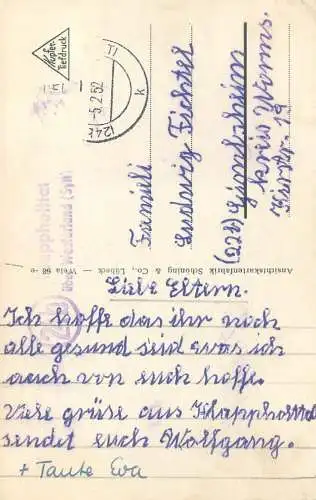 Liebe Eltern.
Ich hoffe das ihr noch
alle gesund seid was ich
auch von euch hoffe.
Viele grüse aus Klappholttal
sendet euch Wolfgang.
+ Tante Eva
Familie
Ludwig Fichtel
(22b) Gimbsheim
kreis Worms.
19
Ansichtskartenfabrik Schöning & Co., Lübeck — Wela 66 e
Kupfer-
Tiefdruck
-5.2.52
(24b
k
Klappholttal
über Westerland (Sylt)